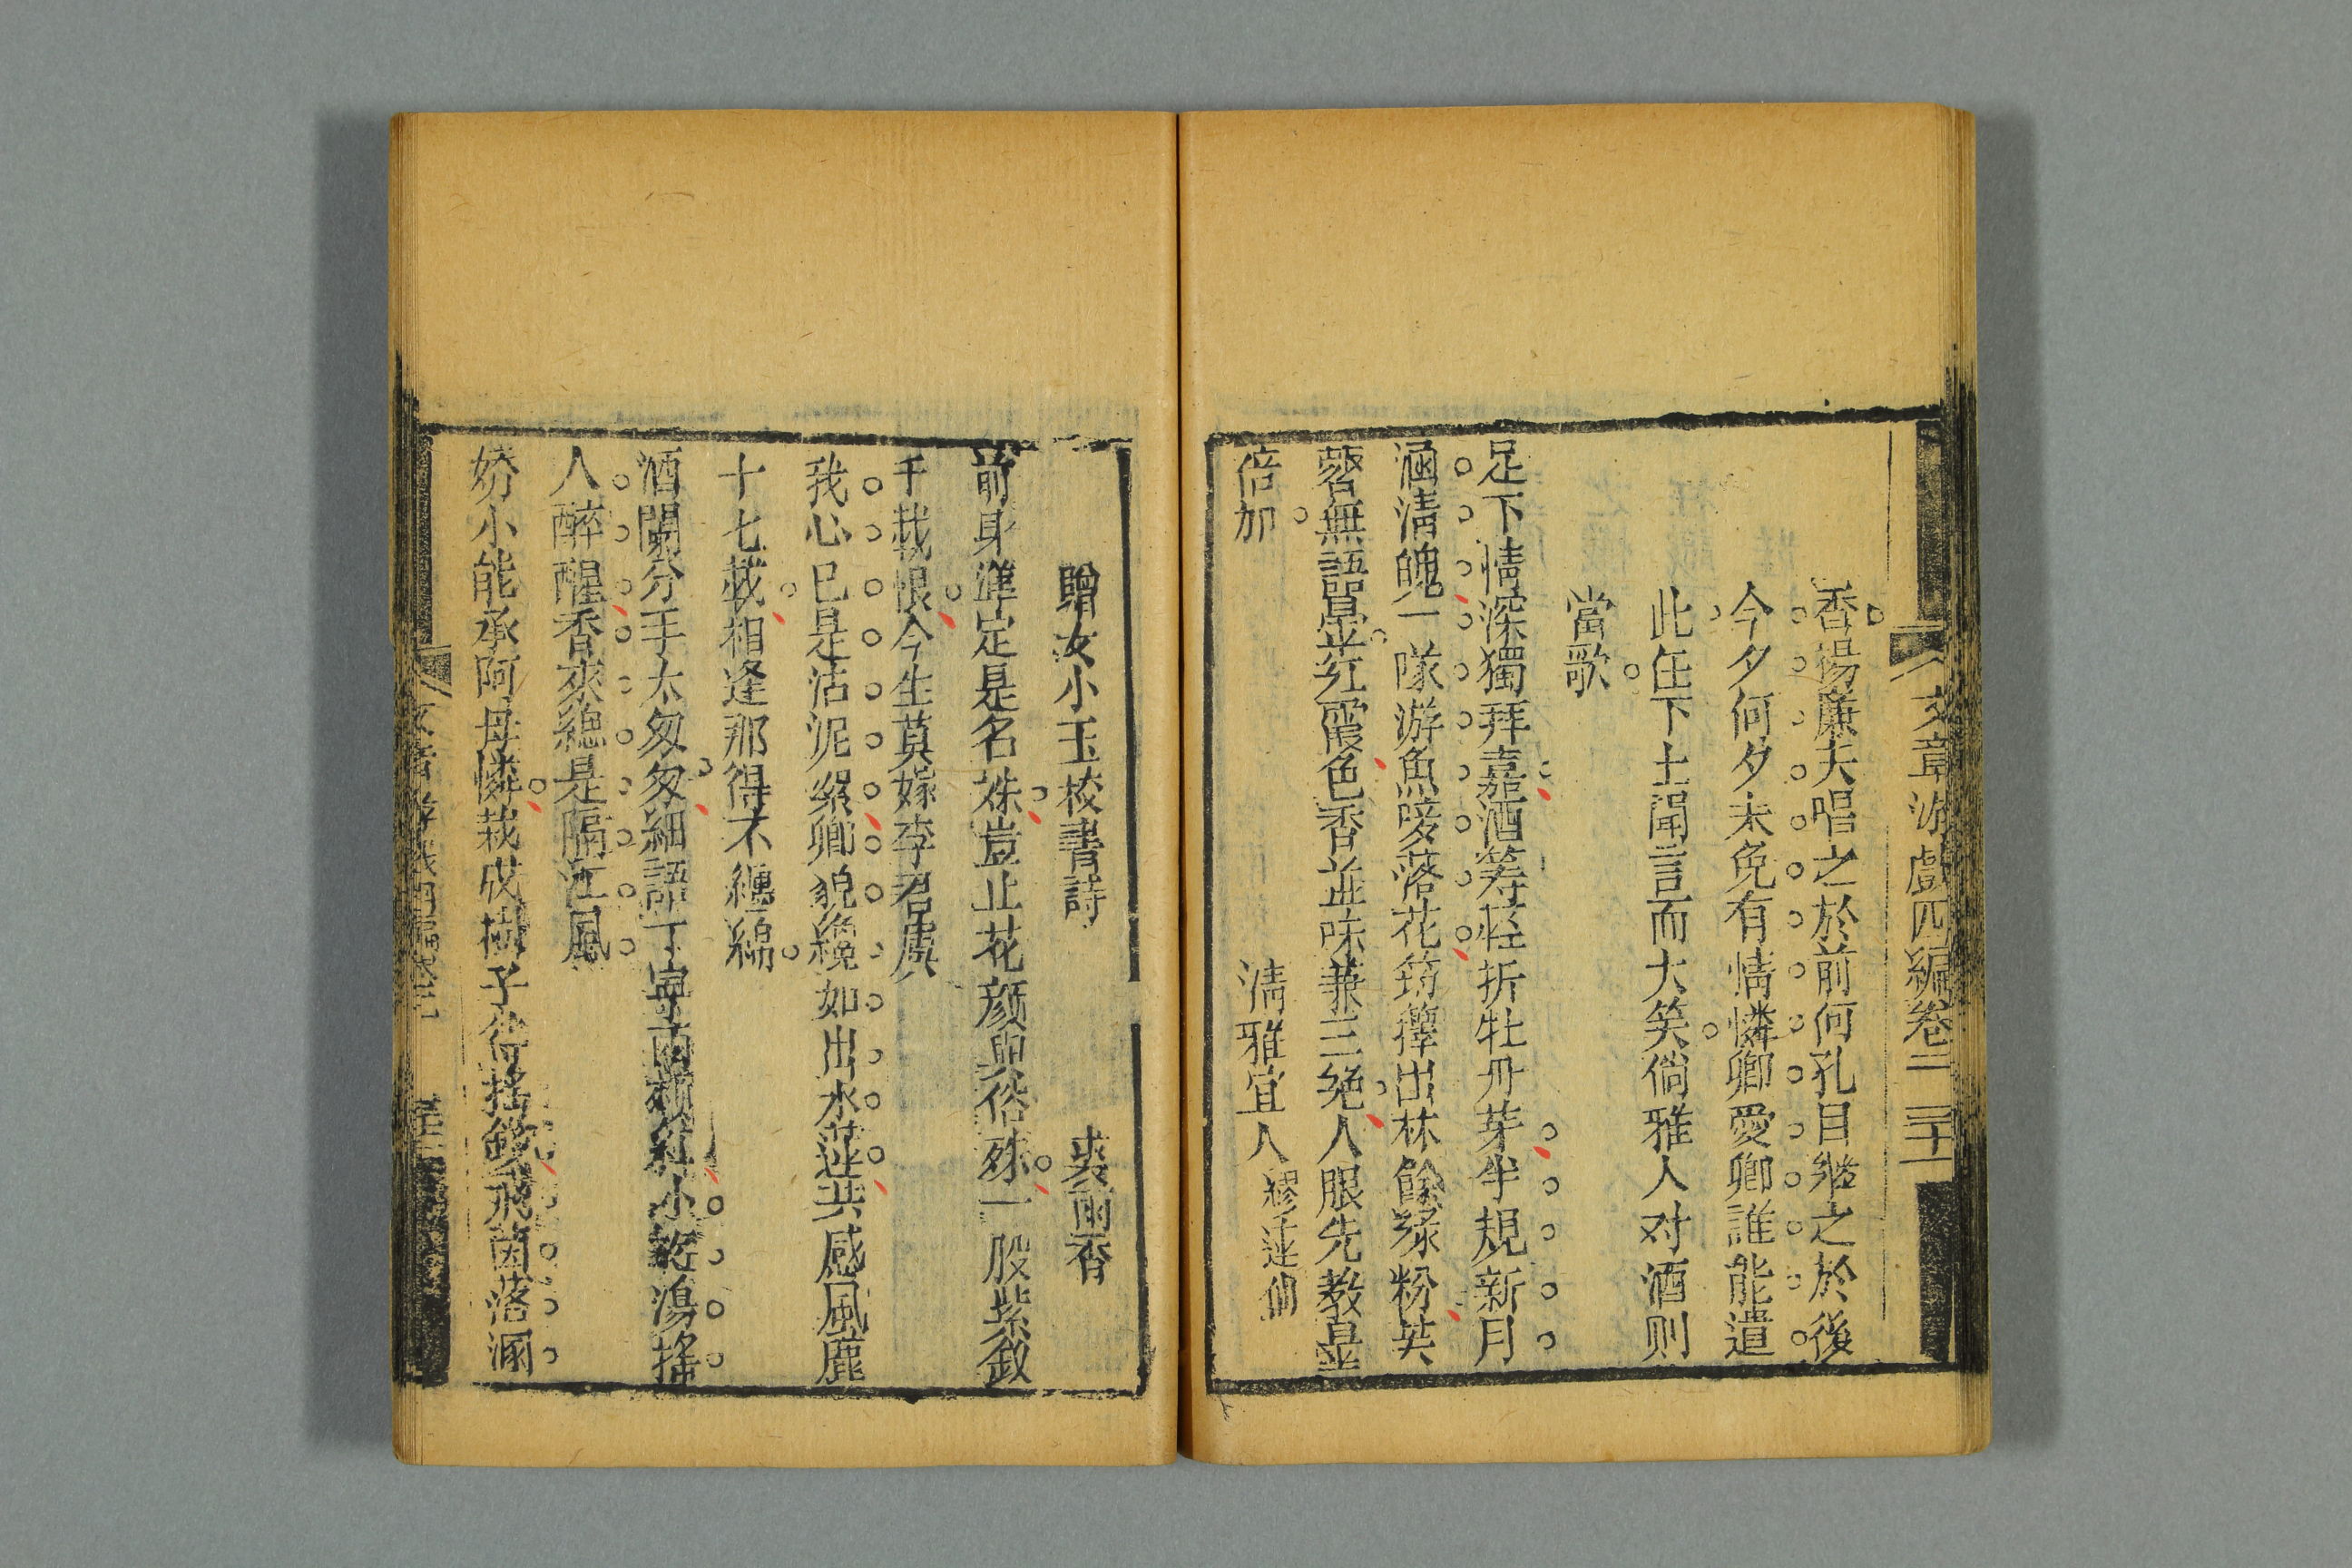 文章游戲四編卷二 三十一
香楊廉夫唱之於前何孔目繼之於後
今夕何夕未免有情憐卿愛卿誰能遣
此任下土聞言而大笑倘雅人对酒则
當歌
足下情深獨拜嘉酒筹莛折牡丹芽半規新月
涵清魄一隊游魚唼落花筍籜出林餘綠粉芙
蓉無語暈紅霞色香並味兼三絕人服先教量
倍加
清雅宜人繆蓮仙
贈女小玉校書詩 裘雨香
前身準定是名姝豈止花顏與俗殊一股紫釵
千載恨今生莫嫁李君虞
我心已是沾泥絮卿貌纔如出水蓮共感風塵
十七載相逢那得不纏綿
酒闌分手太匆匆細語丁寧面頰紅小舫湯搖
人醉醒香來總是隔江風
嬌小能承阿母憐栽成樹子待搖錢飛茵落溷